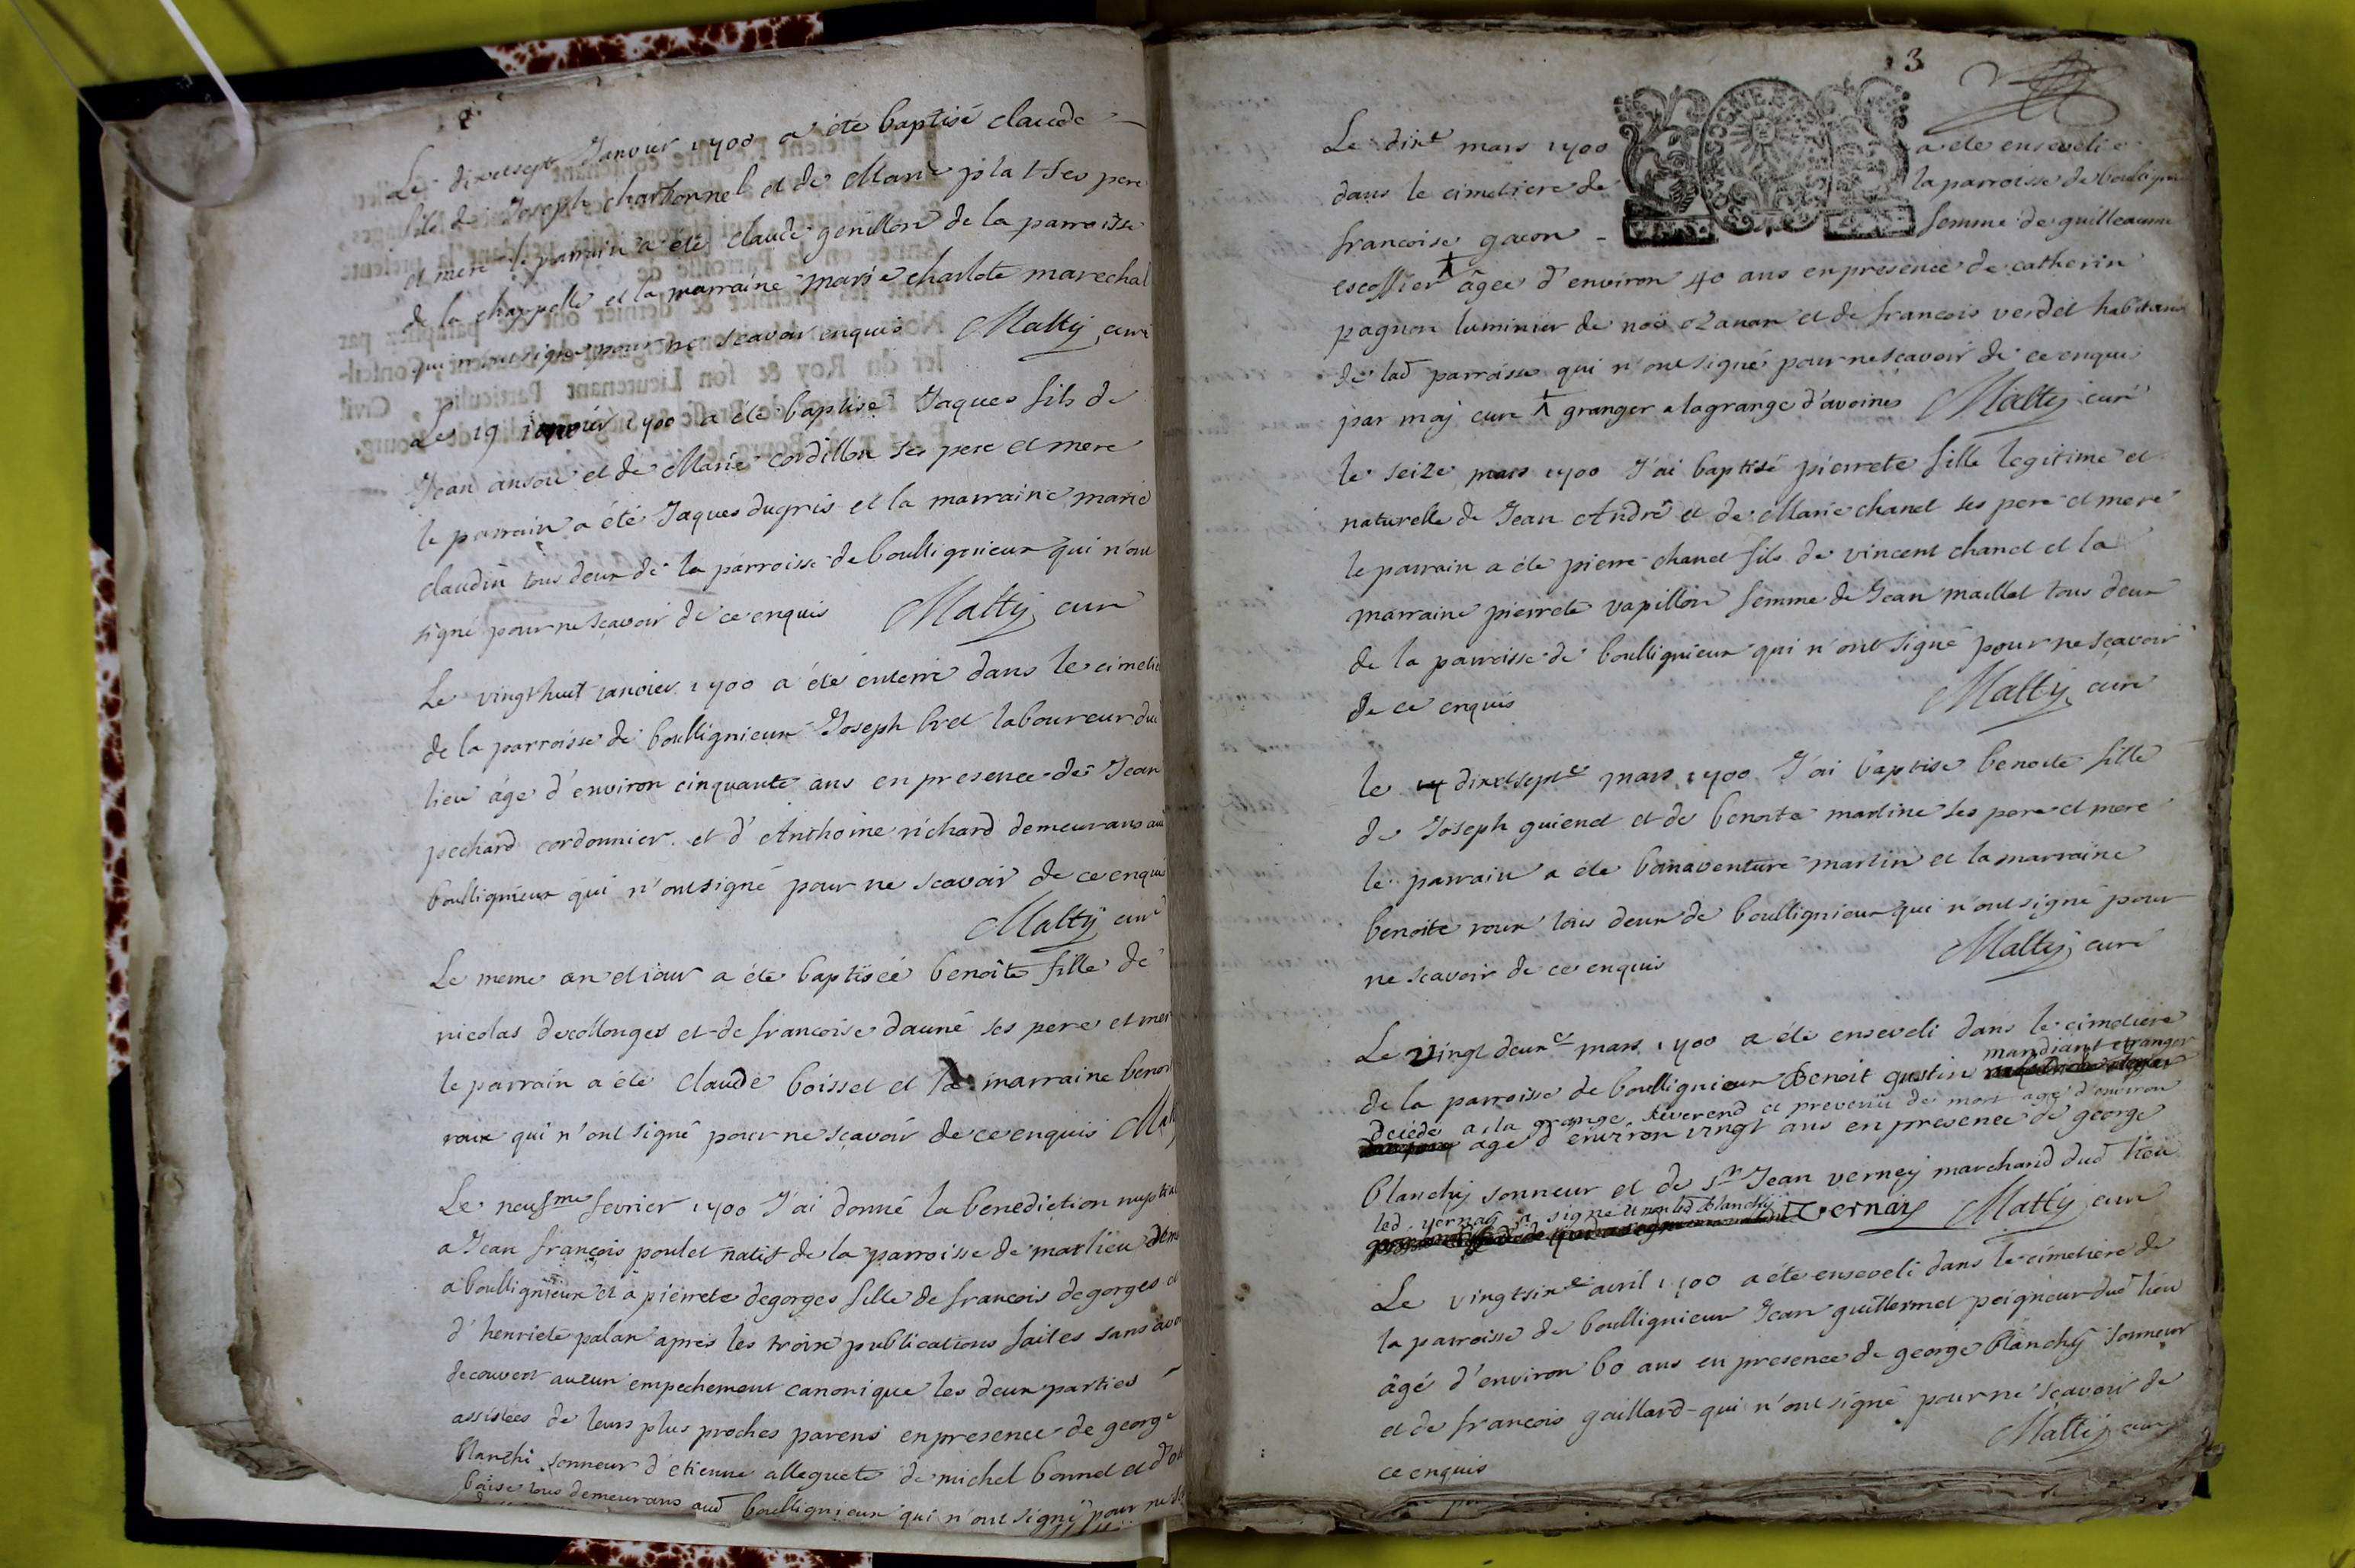 Le dixetsept Janvier 1700 a été baptisé claude
fils de Joseph charbonnel et de Marie jolat ses pere
et mere le parrain a été claude genillon de la parroisse
de la chappelle et la marraine marie charlote marechal
qui n'ont signé pour ne scavoir enquis Matty curé
Le 19 Janvier 1700 a été baptisé Jaques fils de
Jean et de Marie cordillon ses pere et mere
le parrain a été Jaques dugris et la marraine marie
claudin tous deux de la parroisse de boullignieux qui n'ont
signé pour ne sçavoir de ce enquis Matty cure
Le vingthuit Janvier 1700 a été enterré dans le cimetie
de la parroisse de boullignieux Joseph laboureur du
lieu âgé d'environ cinquante ans en presence de Jean
pechard cordonnier et d'Anthoine richard demeurans au
boullignieux qui n'ont signé pour ne scavoir de ce enquis
Matty curé
Le meme an et iour a été baptiséé benoîte fille de
nicolas decollonges et de francoise dauné ses pere et mer
le parrain a été claude boisset et la marraine benoi
roux qui n'ont signé pour ne sçavoir de ce enquis Matty
Le neufme fevrier 1700 J'ai donné la benediction nuptial
a Jean françois poulet natif de la parroisse de marlieu
a boullignieux et a pierrete degorges fille de francois degorges et
d'henriete palan apres les trois publications faites sans avoi
decouvert aucun empechement canonique les deux parties
assistées de leurs plus proches parens en presence de george
blanchi sonneur d'etienne alleguete de michel bonnet et
tous demeurans aud boullignieux qui n'ont signé pour ne
3
Le dixe mars 1700 a été ensevelie
dans le cimetiere de la parroisse de boullignieux
francoise gacon femme de guilleaume
escoffier âgée d'environ 40 ans en presence de catherin
pagnon luminier de noe ozanon et de francois verdet habitans
de lad parroisse qui n'ont signé pour ne scavoir de ce enquis
par moy curé granger a lagrange d'avoines Matty curé
le seize mars 1700 J'ai baptisé pierrete fille legitime et
naturelle de Jean André et de Marie chanel ses pere et mere
le parrain a été pierre chanel fils de vincent chanel et la
marraine pierrete vapillon femme de Jean maillet tous deux
de la parroisse de boullignieux qui n'ont signé pour ne sçavoir
de ce enquis Matty cure
le dixetsepte mars 1700 J'ai baptisé benoite fille
de Joseph guienet et de benoite martine ses pere et mere
le parrain a été bonaventure martin et la marraine
benoite roux tous deux de boullignieux qui n'ont signé pour
ne scavoir de ce enquis Matty curé
Le vingt deuxe mars 1700 a été enseveli dans le cimetiere
mandiant etranger
de la parroisse de boullignieux Benoit gustin
decedé a la grange Reverend et prevenu de mort agé d'environ
agé d'environ vingt ans en presence de george
blanchy sonneur et de Sr Jean verney marchand dud lieu
led vernay a signé et non led blanchy
Vernay Matty cure
Le vingtsixe avril 1700 a été enseveli dans le cimetiere de
la parroisse de boullignieux Jean guillermet peigneur dud lieu
âgé d'environ 60 ans en presence de george blanchy sonneur
et de françois gaillard qui n'ont signé pour ne sçavoir de
ce enquis Matty cure